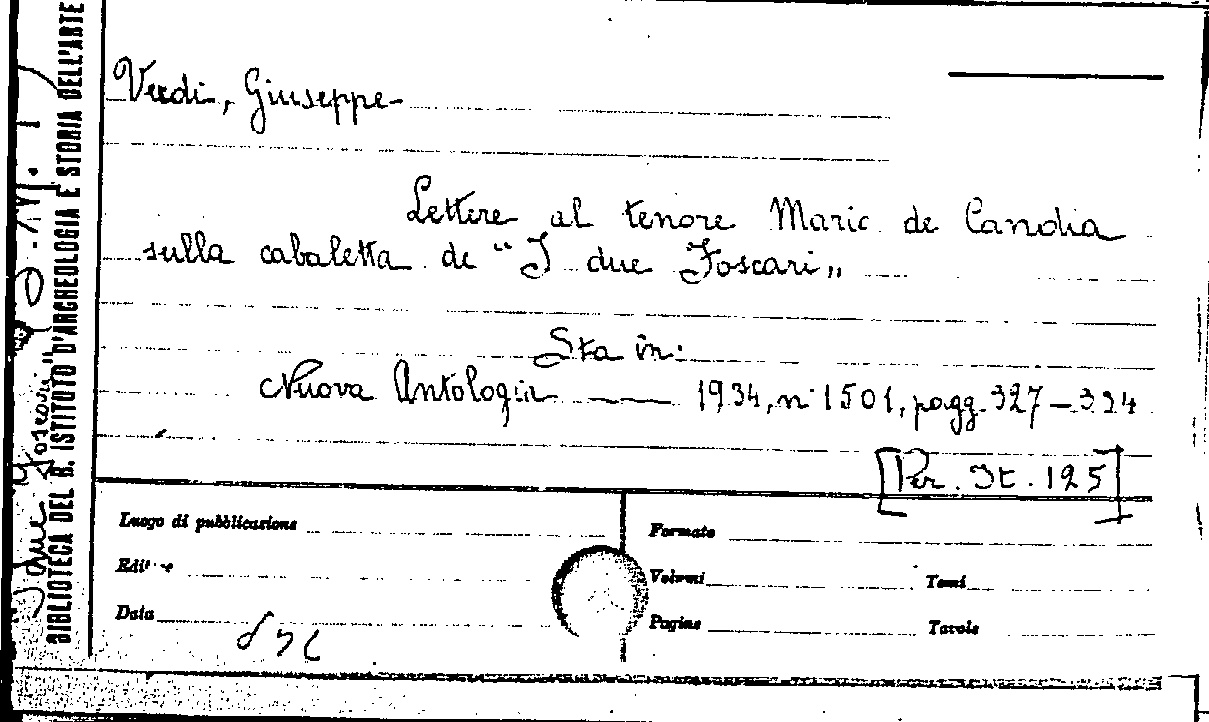 Verdi, Giuseppe
Lettere al tenore Mario de Candia
sulla cabaletta de "I due Foscari"
Sta in:
Nuova Antologia —— 1934, n° 1501, pagg. 327-334
[Per. It. 125]
Luogo di pubblicazione
Formato
Volumi
Tomi
Data
Pagine
Tavole
BIBLIOTECA DEL R. ISTITUTO D'ARCHEOLOGIA E STORIA DELL'ARTE